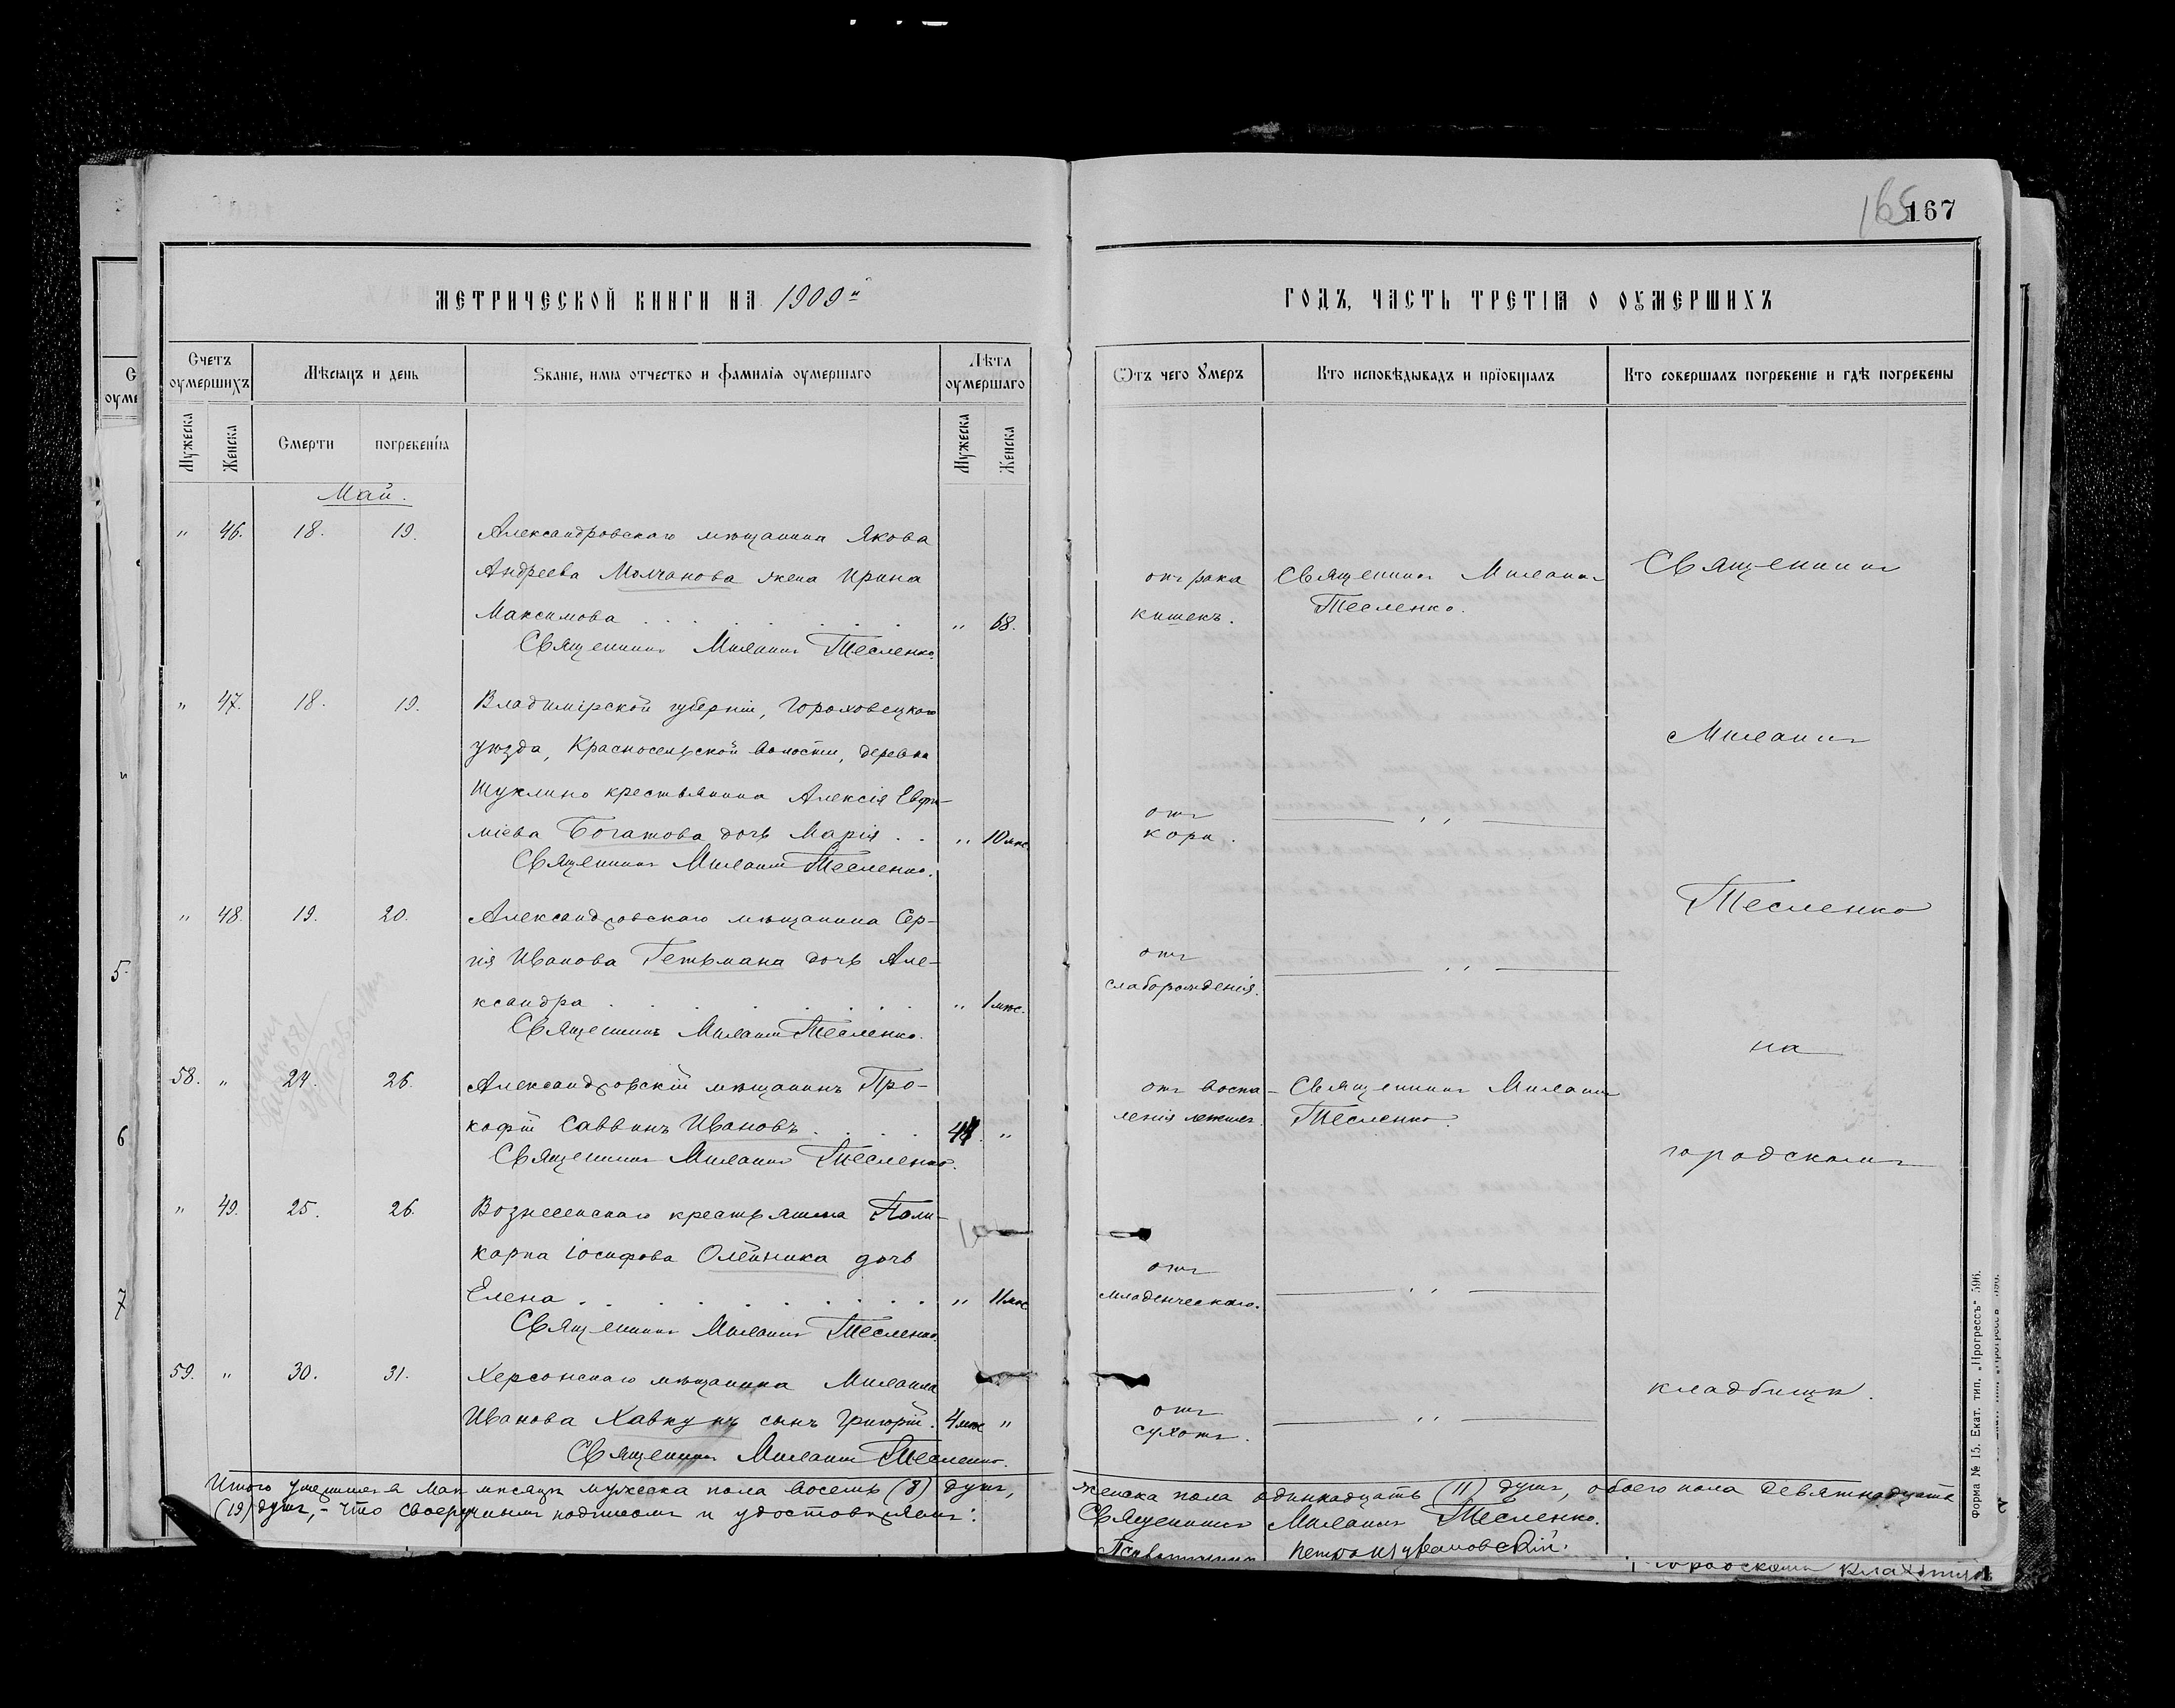 165
167
МЕТРИЧЕСКОЙ КНИГИ НА 1909й
ГОДЪ, ЧАСТЬ ТРЕТІЯ О ОУМЕРШИХЪ
Счетъ оумершихъ
Мѣсяцъ и день
Званіе, имя отчество и фамилія оумершаго
Лѣта оумершаго
Отъ чего умеръ
Кто исповѣдывалъ и пріобщалъ
Кто совершалъ погребеніе и гдѣ погребены
Мужеска
Женска
Смерти
погребенія
Мужеска
Женска
Май.
" 46. 18. 19. Александровскаго мѣщанина Якова
Андреева Молчанова жена Ирина
Максимова . . . " 68.
Священникъ Михаилъ Тесленко.
отъ рака
кишекъ.
Священникъ Михаилъ
Тесленко.
" 47. 18. 19. Владимірской губерніи, Гороховецкаго
уѣзда, Красносельской волости, деревни
Шуклино крестьянина Алексія Евфи-
міева Богатова дочь Марія . . " 10 мѣс.
Священникъ Михаилъ Тесленко.
отъ
кори.
— " —
" 48. 19. 20. Александровскаго мѣщанина Сер-
гія Иванова Гетьмана дочь Але-
ксандра . . . " 1 мѣс.
Священникъ Михаилъ Тесленко.
отъ
слаборожденія.
— " —
58. " 24. 26. Александровскій мѣщанинъ Про-
кофій Саввинъ Ивановъ . . . "
Священникъ Михаилъ Тесленко.
отъ воспа-
ленія легкихъ.
Священникъ Михаилъ
Тесленко.
" 49. 25. 26. Вознесенскаго крестьянина Поли-
карпа Іосифова Олейника дочь
Елена . . . " 11 мѣс.
Священникъ Михаилъ Тесленко.
отъ
младенческаго.
— " —
59. " 30. 31. Херсонскаго мѣщанина Михаила
Иванова сынъ Григорій. 4 мѣс. "
Священникъ Михаилъ Тесленко.
отъ
сухотъ.
— " —
Священникъ
Михаилъ
Тесленко
на
городскомъ
кладбищѣ.
Итого умершихъ въ Маѣ мѣсяцѣ мужеска пола восемь (8) душъ, женска пола одинкадцать (11) душъ, обоего пола девятнадцать
(19) душъ, – что своеручнымъ подписомъ и удостовѣряемъ:
Священникъ Михаилъ Тесленко.
Псаломщикъ Петръ
Форма № 15. Екат. тип. „Прогрессъ" 596.
городскомъ кладбищѣ
5
6
7